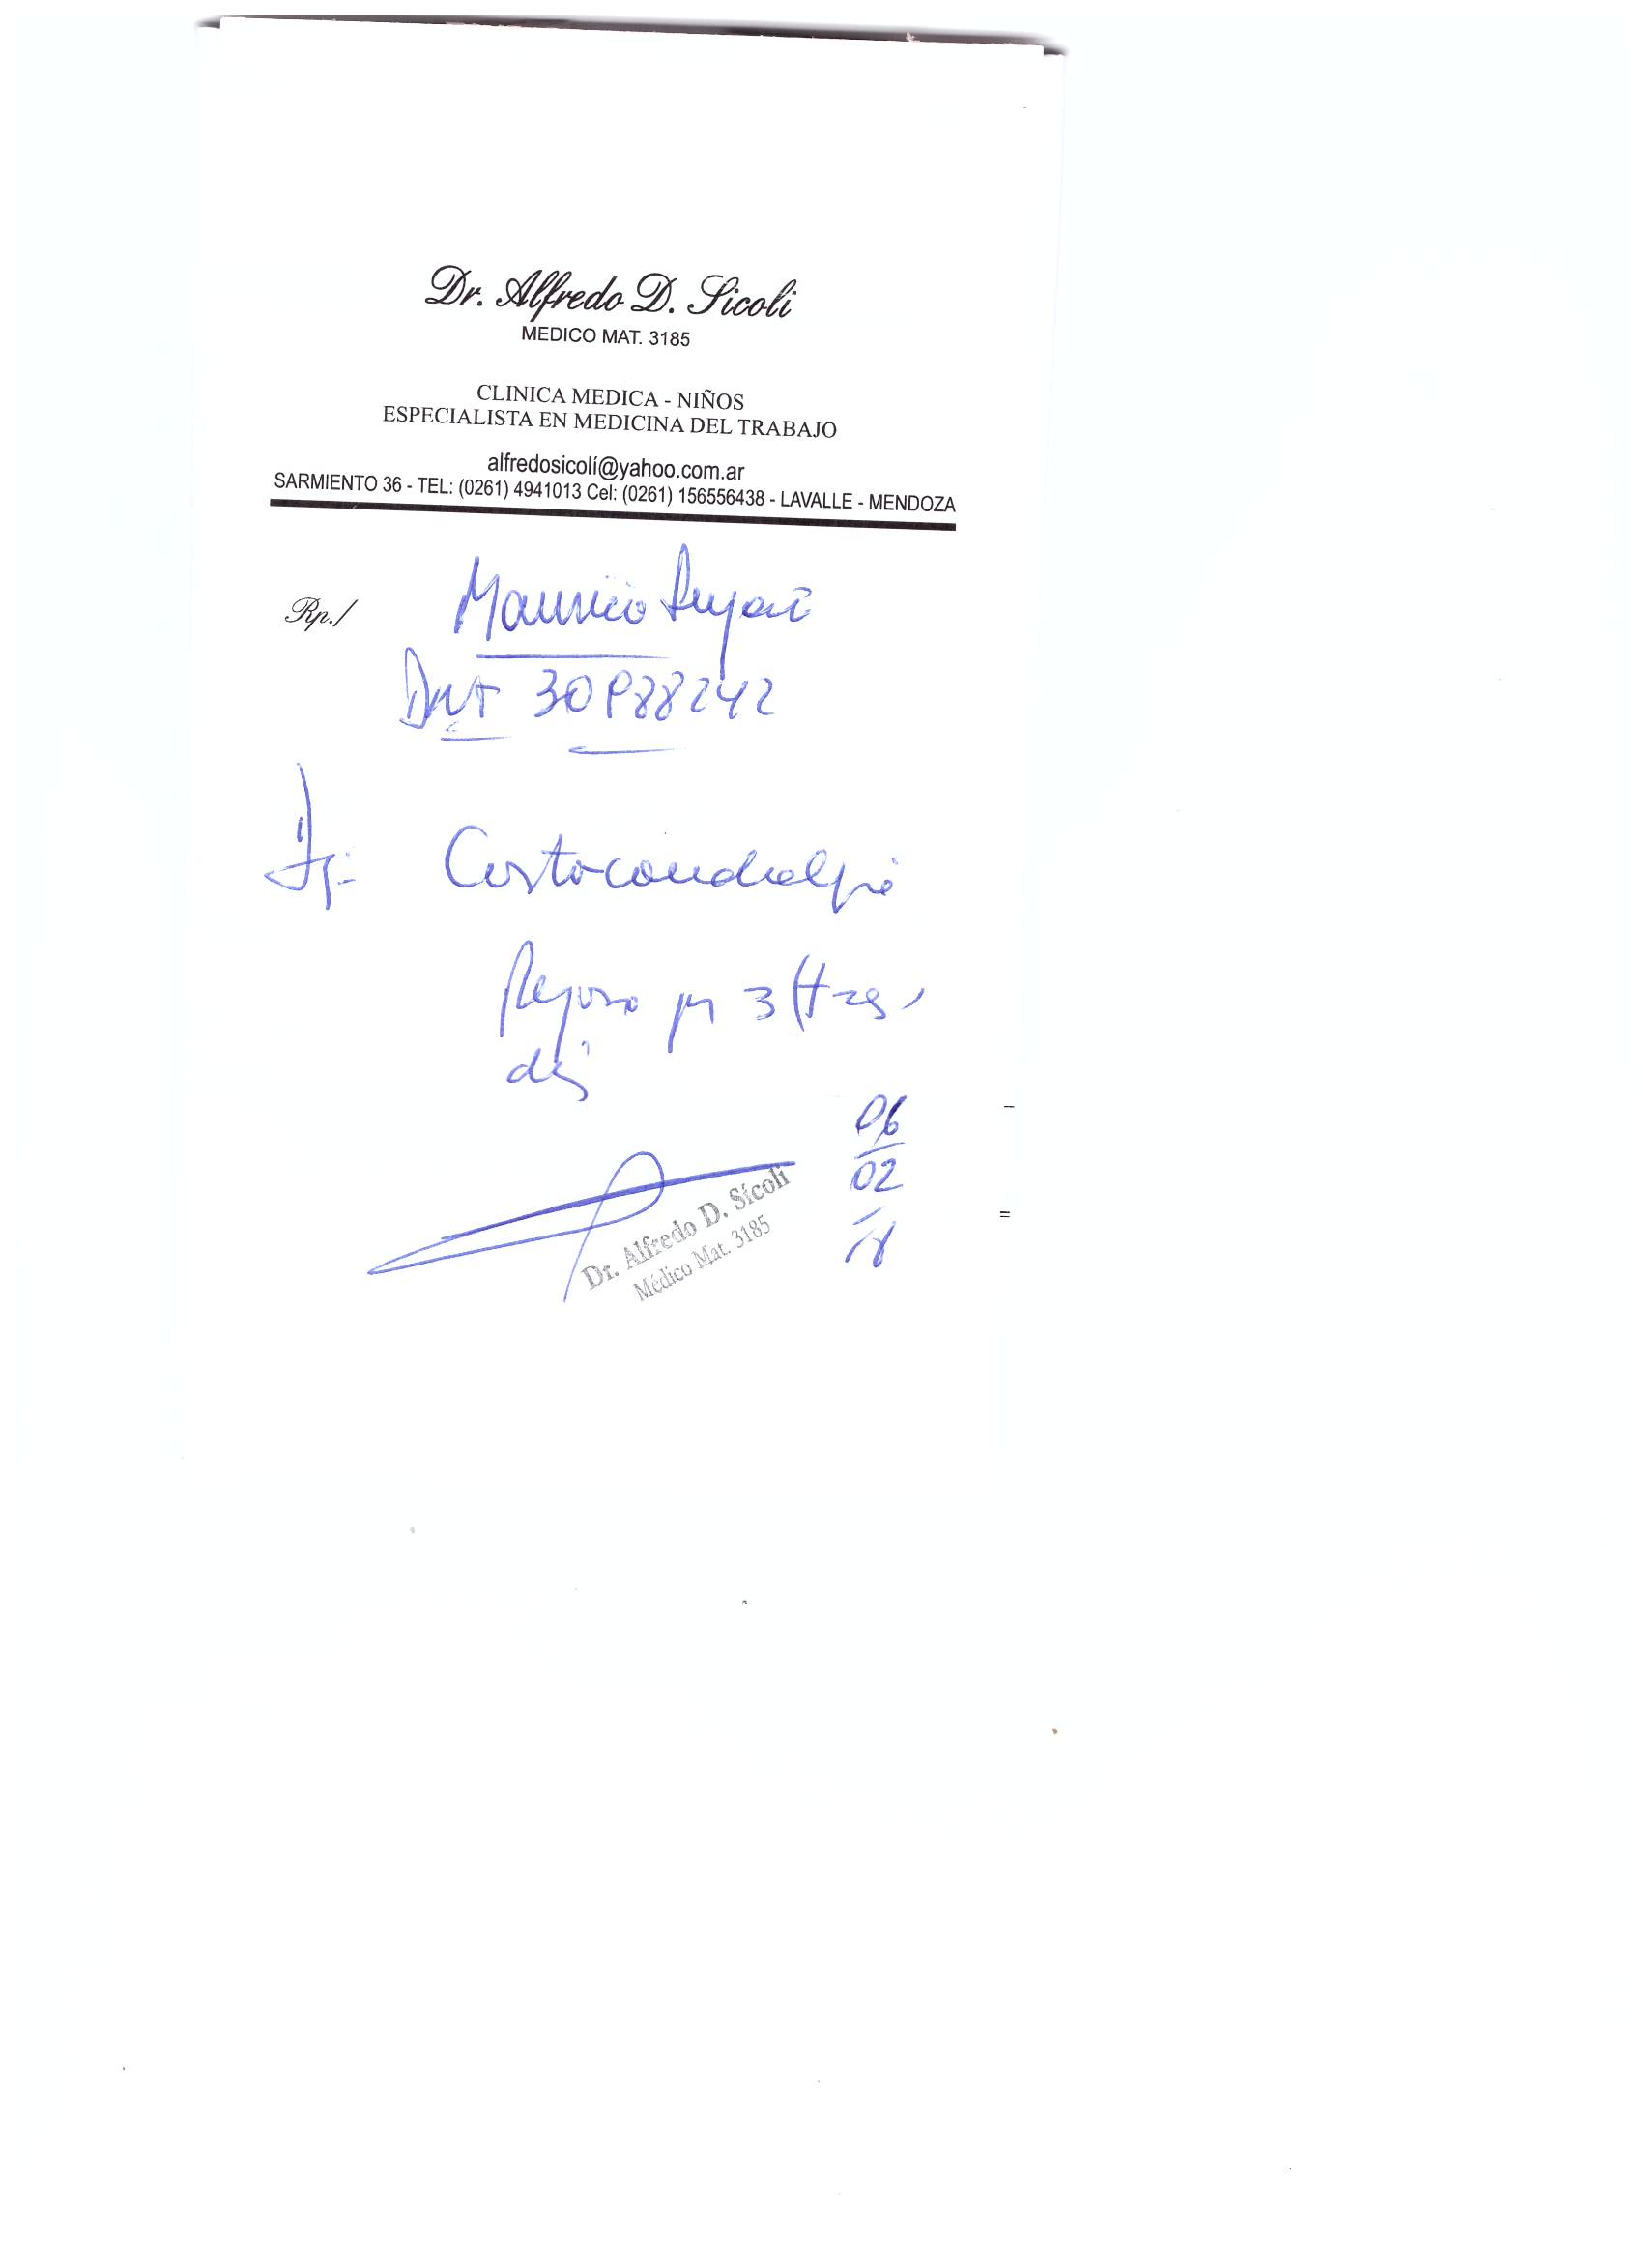 Dr. Alfredo D. Sicoli
MEDICO MAT. 3185
CLINICA MEDICA - NIÑOS
ESPECIALISTA EN MEDICINA DEL TRABAJO
alfredosicolí@yahoo.com.ar
SARMIENTO 36 - TEL: (0261) 4941013 Cel: (0261) 156556438 - LAVALLE - MENDOZA
Rp./ Mauricio
30988242
Costocondralgia
Reposo 3 (tres)
días
06
02
18
Dr. Alfredo D. Sícoli
Médico Mat. 3185